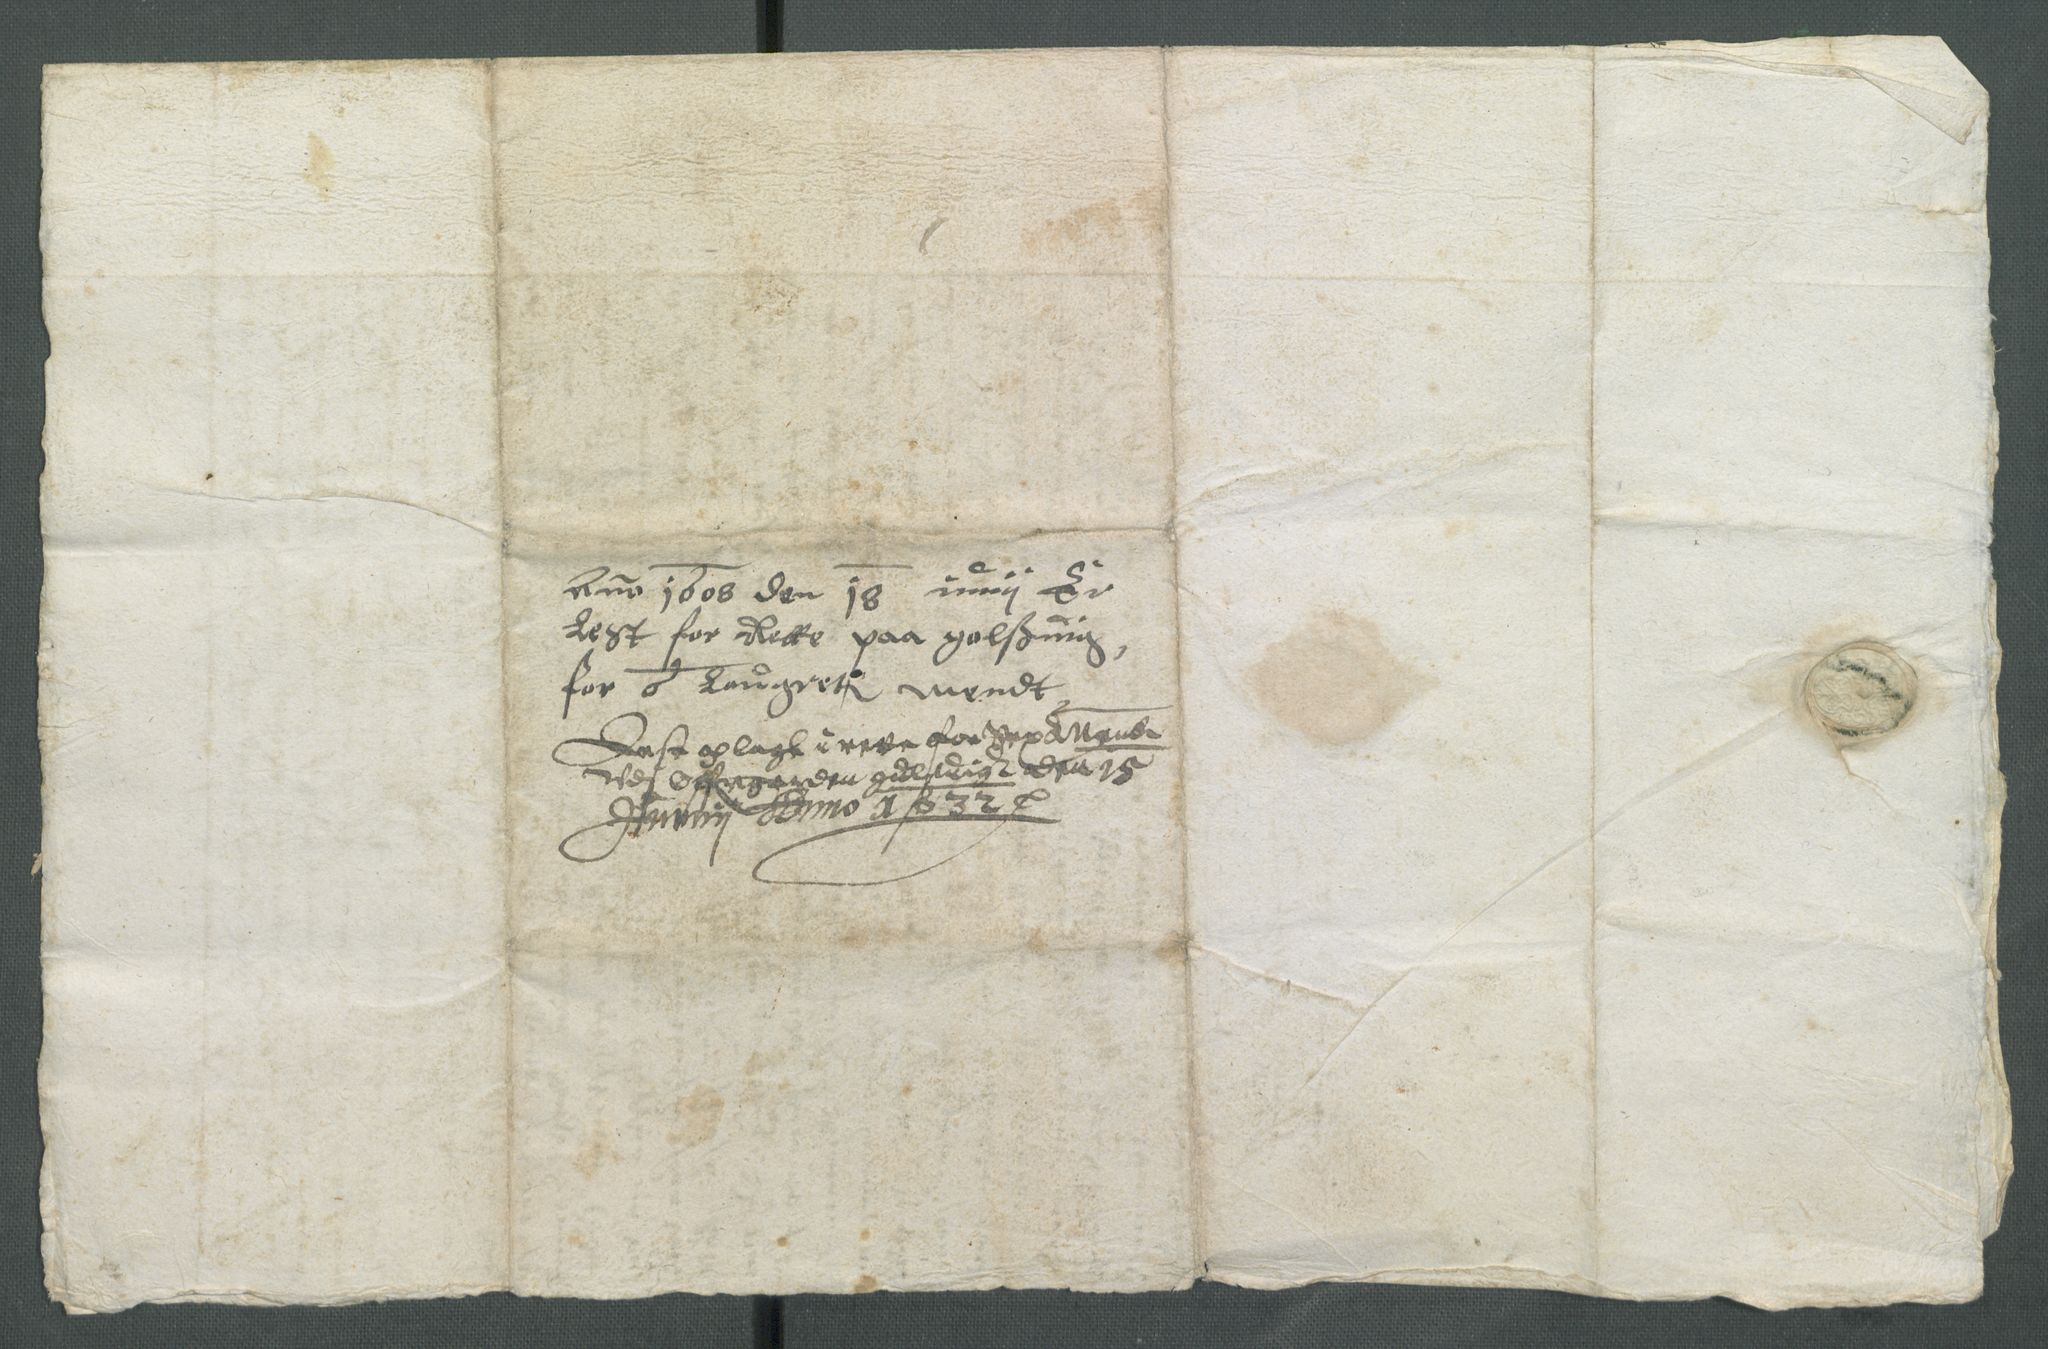 Anno 1608 den 18 iunij Er
Lest for Rette paa golszuig,
for 6 Laugrets mendt
Lest oplagt i rette for Sex Mend
wdj den 15
Junij Anno 1632